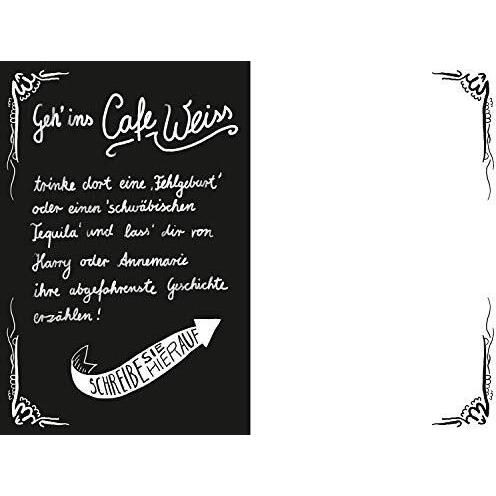 Geh' ins Cafe Weiss
trinke dort eine ,Fehlgeburt'
oder einen 'schwäbischen
Tequila' und lass' dir von
Harry oder Annemarie
ihre abgefahrenste Geschichte
erzählen!
SCHREIBE SIE HIERAUF